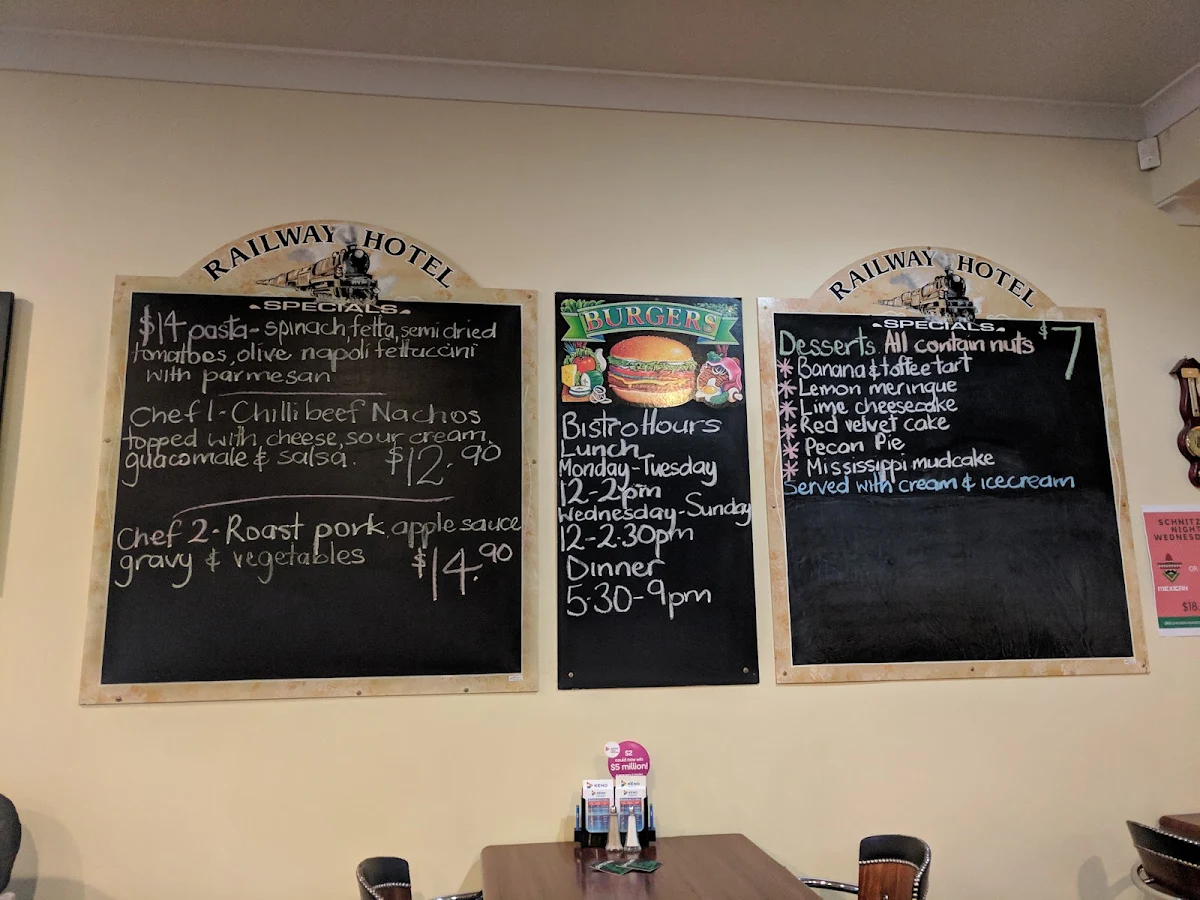 RAILWAY HOTEL
SPECIALS
$14 pasta - spinach, fetta, semi dried
tomatoes, olive napoli fettuccini
with parmesan
Chef 1 - Chilli beef Nachos
topped with cheese, sour cream,
guacomale & salsa. $12.90
Chef 2 - Roast pork, apple sauce
gravy & vegetables $14.90
BURGERS
Bistro Hours
Lunch
Monday - Tuesday
12-2pm
Wednesday - Sunday
12-2.30pm
Dinner
5.30-9pm
RAILWAY HOTEL
SPECIALS
Desserts. All contain nuts $7
* Banana & toffee tart
* Lemon meringue
* Lime cheesecake
* Red velvet cake
* Pecan Pie
* Mississippi mudcake
Served with cream & icecream
SCHNITZ
NIGHT
WEDNESD
OR
MEXICAN
$18.
$2
could now win
$5 million!
KENO
KENO